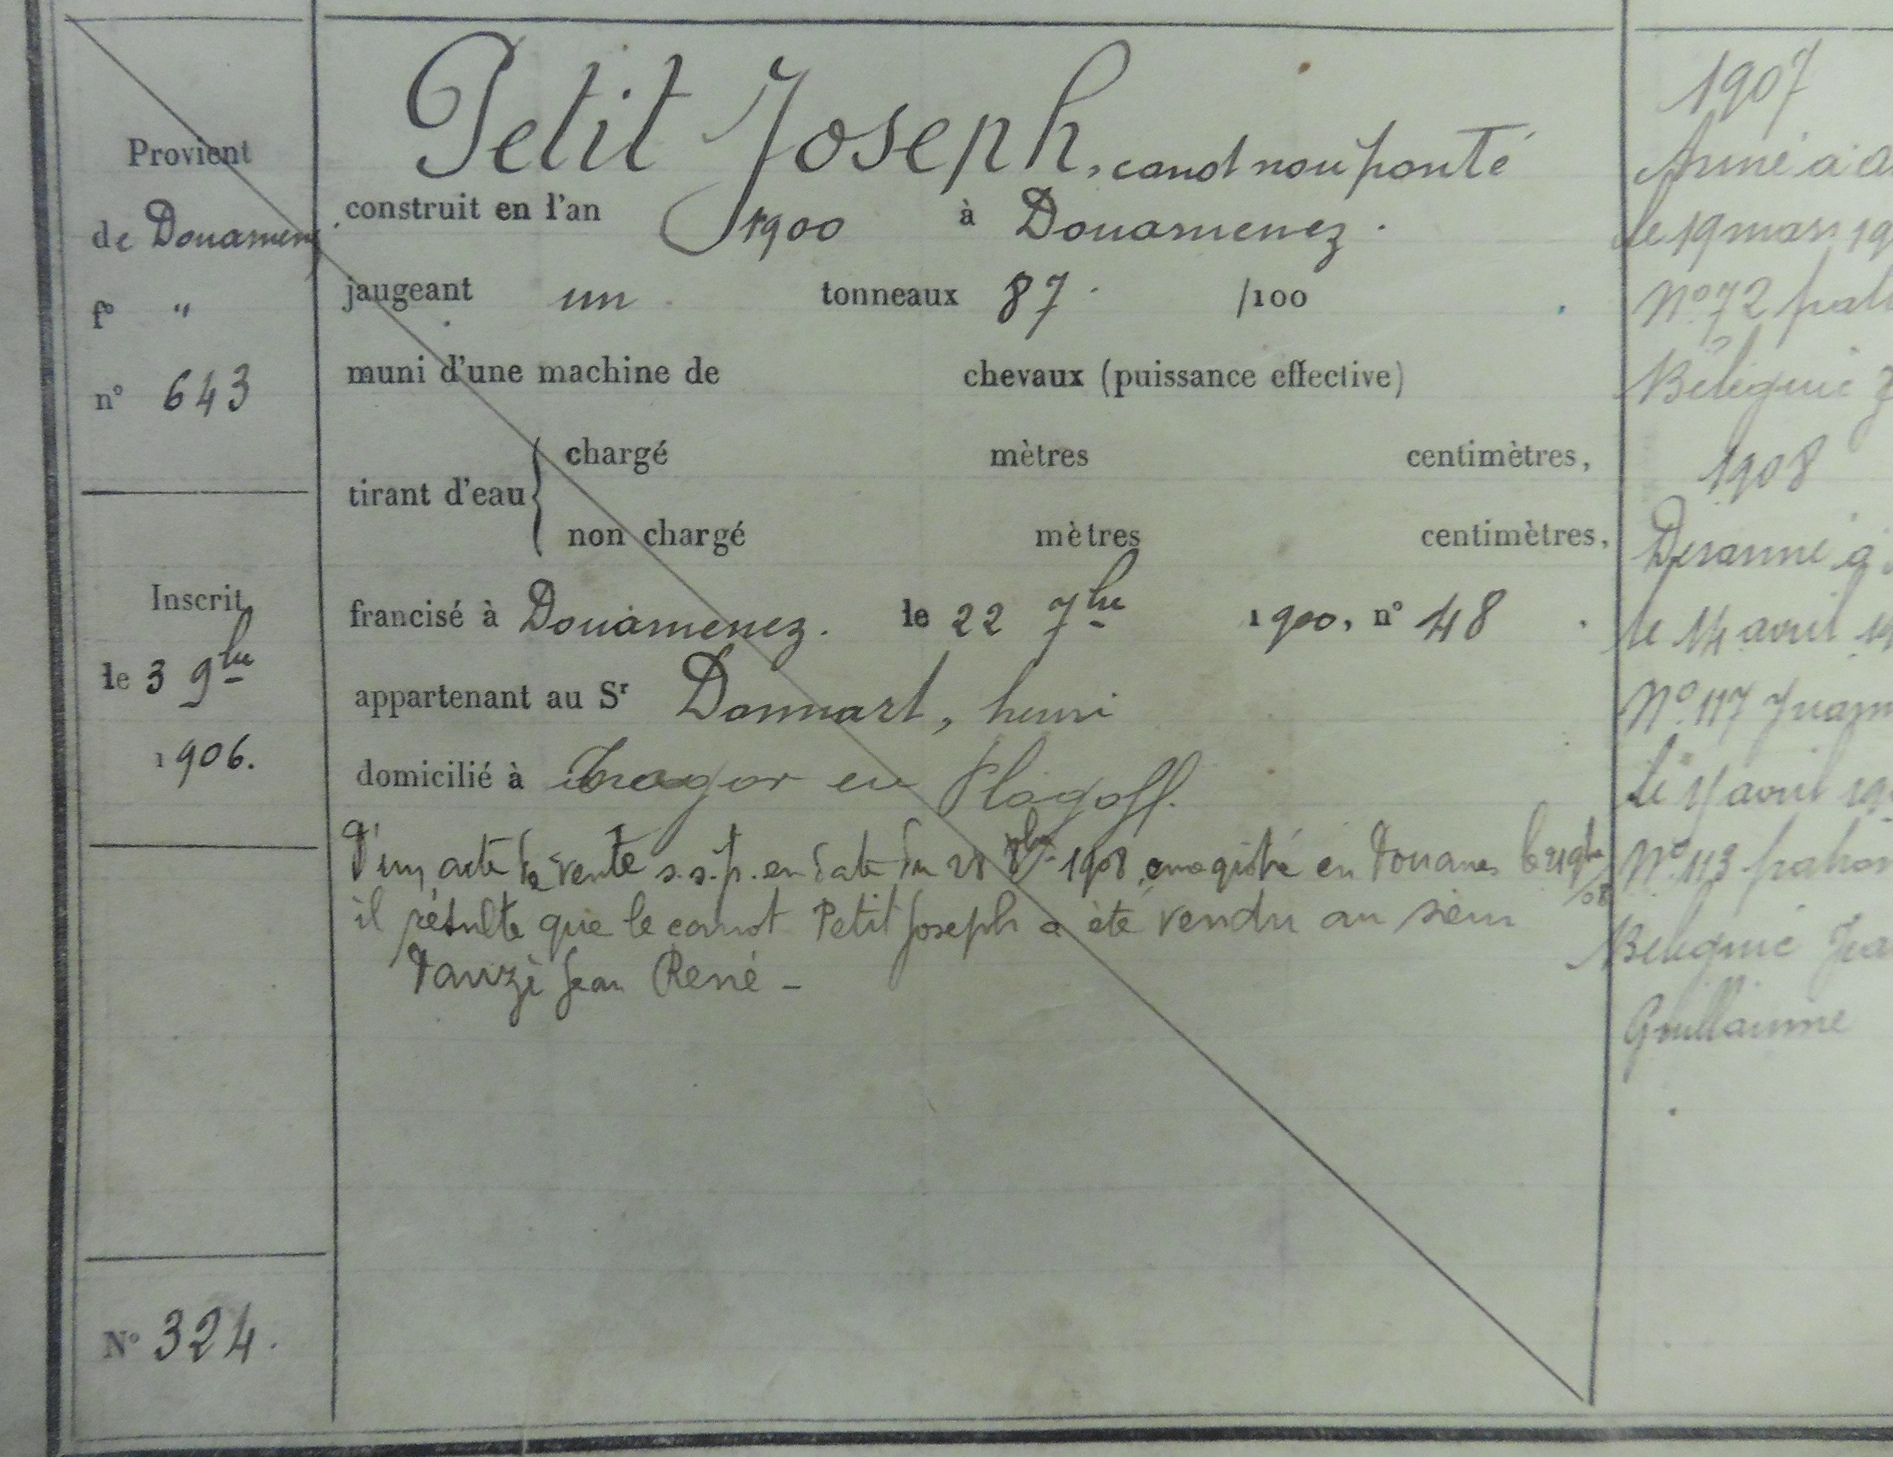 Provient
de Douarnenez
fº "
nº 643
Inscrit
le 3 9bre
1906.
Nº 324.
Petit Joseph, canot non ponté
construit en l'an 1900 à Douarnenez.
jaugeant un tonneaux 87 /100
muni d'une machine de chevaux (puissance effective)
tirant d'eau
chargé mètres centimètres,
non chargé mètres centimètres,
francisé à Douarnenez. le 22 7bre 1900, nº 48
appartenant au Sr Donnart, henri
domicilié à en Plogoff.
D'un acte de vente s.s.p. en date du 28 1908, enregistré en Douanes le
il résulte que le canot Petit Joseph a été vendu au sieur
Danzé Jean René -
1907
Armé à
le 19 mars 19
Nº 72
Béléguic
1908
Desarmé à
le 14 avril 19
Nº 117
le avril 19
Nº 113 patron
Béléguic
Guillaume